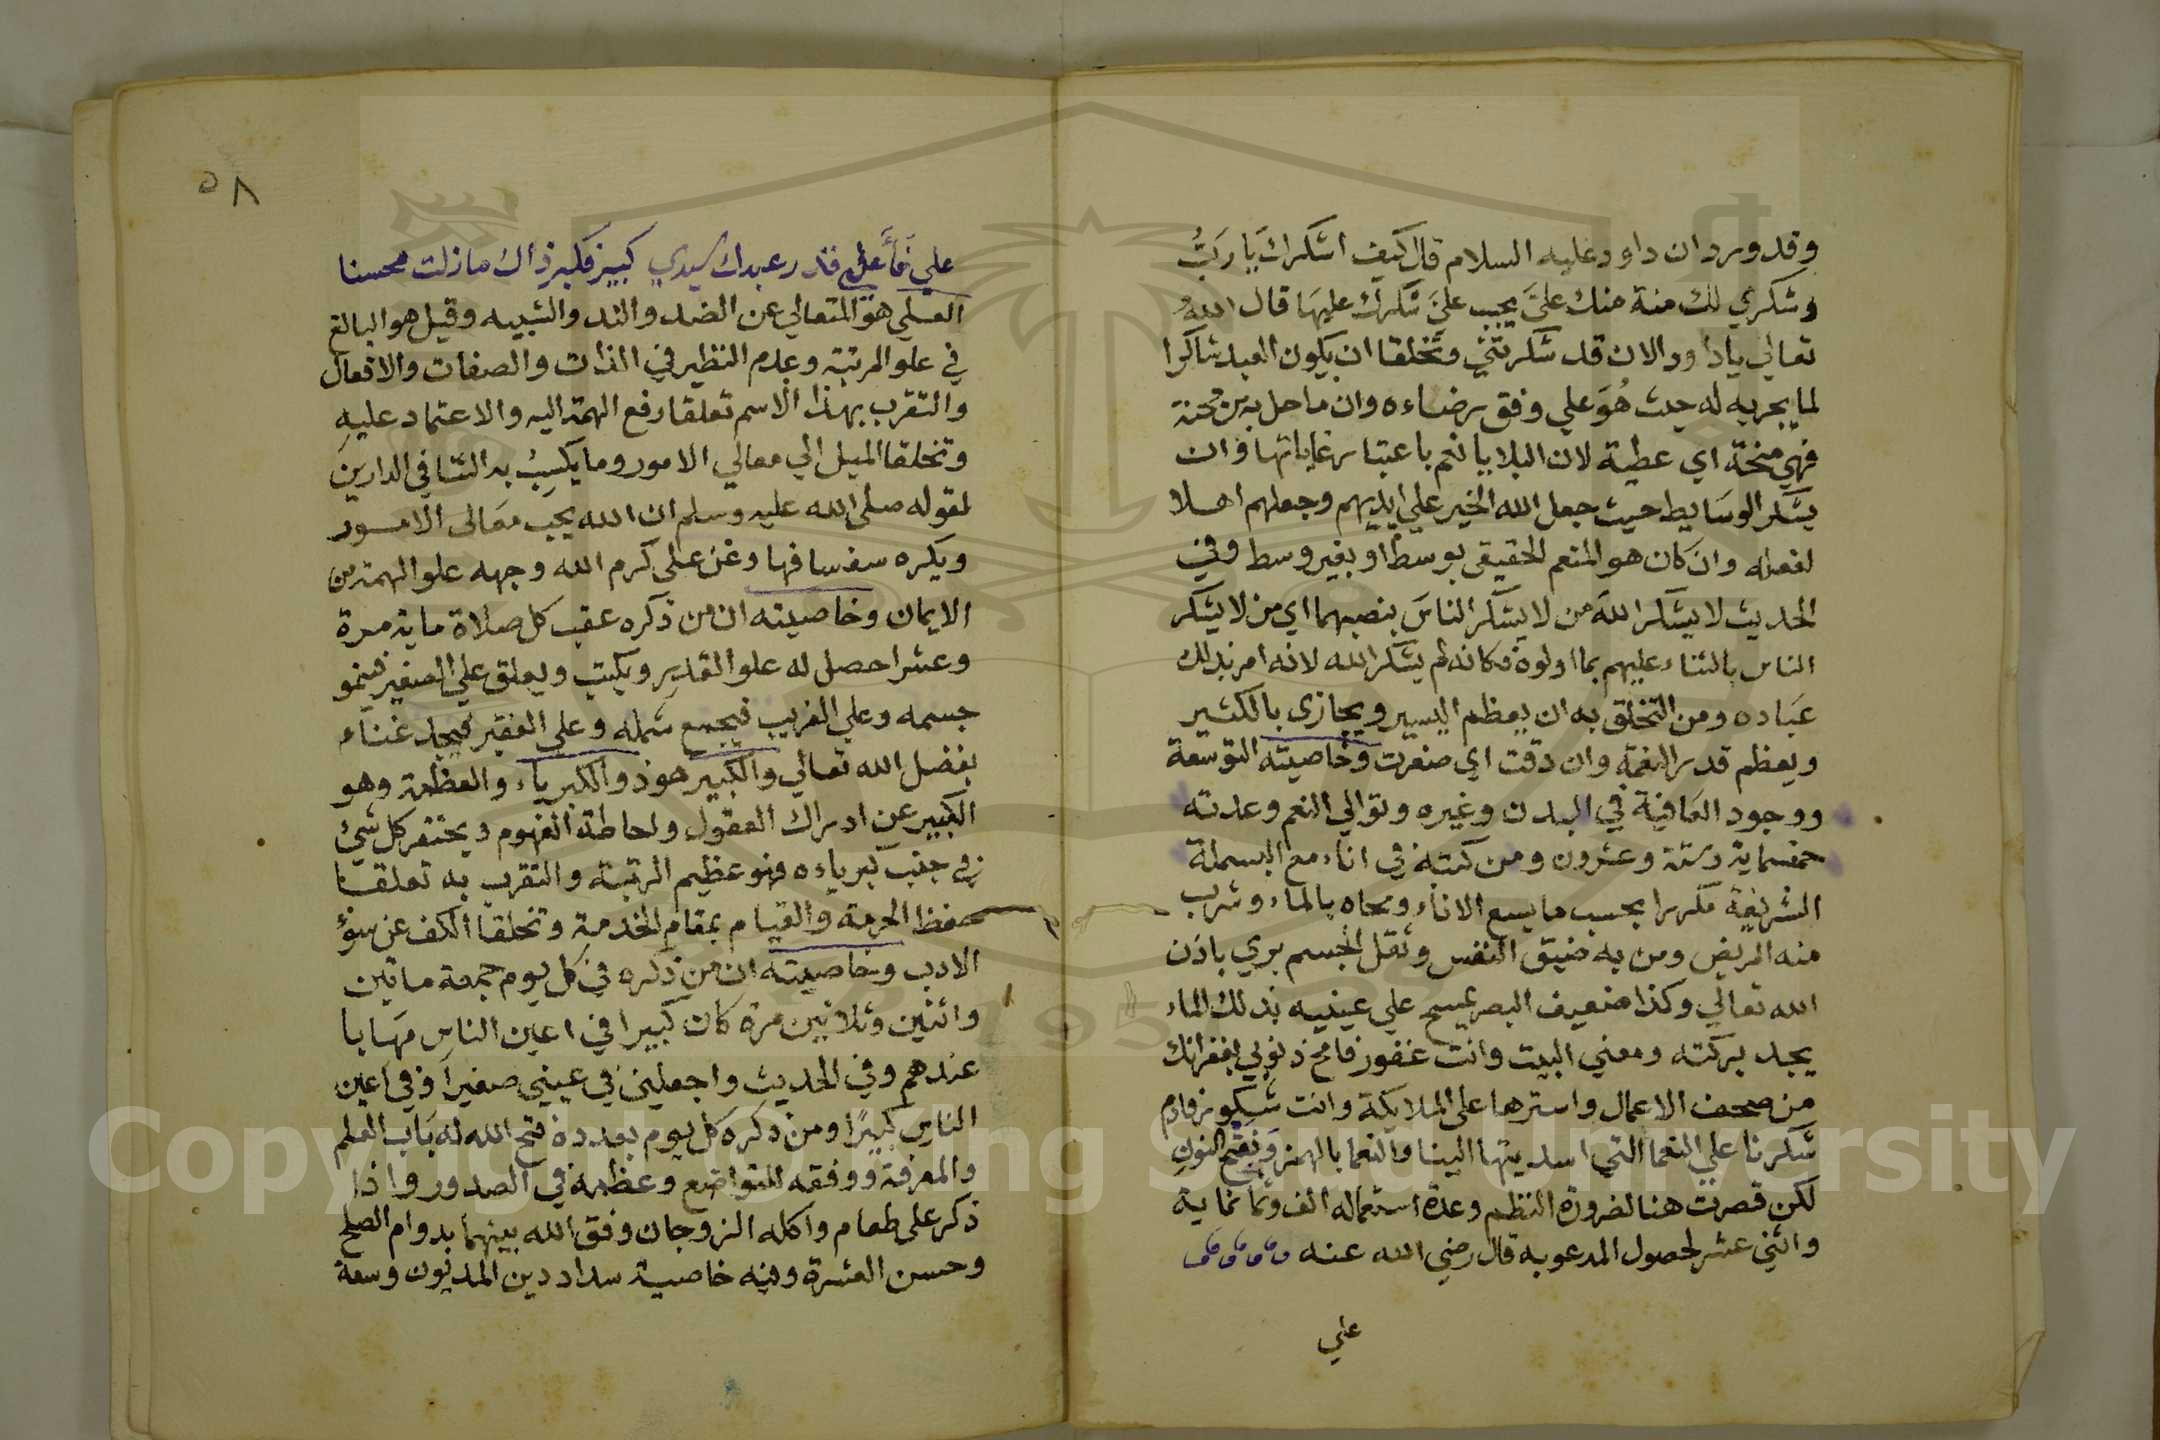 وقد ورد ان داود عليه السلام قال كيف اشكرك يا ربُّ
وشكري لك منة منك عليَّ يجب عليَّ شكرك عليها قال اللهُ
تعالي يا داود الان قد شكرتني وتخلقا ان يكون العبد شاكرا
لما يجريه له حيث هُوَ علي وفق رضاءه وان ما حل به من محنة
فهي منحة اي عطية لان البلايا نعم باعتبار غاياتها وان
يشكر الوسايط حيث جعل الله الخير علي ايديهم وجعلهم اهلا
لفعله وان كان هو المنعم الحقيقي بوسط او بغير وسط وفي
الحديث لا يشكر اللهَ من لا يشكر الناسَ بنصبهما اي من لا يشكر
الناس بالثناء عليهم بما اولوه فكانه لم يشكر الله لانه امر بذلك
عباده ومن التخلق به ان يعظم اليسير ويجازى بالكثير
ويعظم قدر النعمة وان دقت اي صغرت وخاصيته التوسعة
ووجود العافية في البدن وغيره وتوالي النعم وعدته
خمسماية وستة وعشرون ومن كتبه في اناء مع البسملة
الشريفة مكررا بحسب ما يسع الاناء ومحاه بالماء وشرب
منه المريض ومن به ضيق النفس وثقل الجسم بري باذن
الله تعالي وكذا ضعيف البصر يمسح علي عينيه بذلك الماء
يجد بركته ومعني البيت وانت غفور فامح ذنوبي بغفرانك
من صحف الاعمال واسترها على الملايكة وانت شكور فادم
شكرنا علي النعما التي اسديتها الينا والنعما بالهمز وبفتح النون
لكن قصرت هنا لضرورة النظم وعدة استعماله الف وثمانماية
واثني عشر لحصول المدعو به قال رضي الله عنه
علي
٥٨
علي فأعلي قدر عبدك سيدي كبير فكبر ذاك ما زلت محسنا
العلي هو المتعالي عن الضد والند والشبيه وقيل هو البالغ
في علو المرتبة وعدم النظير في الذات والصفات والافعال
والتقرب بهذا الاسم تعلقا رفع الهمة اليه والاعتماد عليهِ
وتخلقا الميل الي معالي الامور وما يكسِبُ به الثنا في الدارينِ
لقوله صلى الله عليه وسلم ان الله يحب معالى الامور
ويكره سفسافها وعن على كرم الله وجهه علو الهمة من
الايمان وخاصيته ان من ذكره عقب كل صلاة ماية مرة
وعشرا حصل له علو القدر ويكتب ويعلق علي الصغير فينمو
جسمه وعلي الغريب فيجمع شمله وعلي الفقير فيجد غناء
بفضل الله تعالي والكبير هو ذو الكبرياء والعظمة وهو
الكبير عن ادراك العقول واحاطة الفهوم ويحتقر كل شيئ
في جنب كبرياءه فهو عظيم الرتبة والتقرب به تعلقا
حفظ الحرمة والقيام بمقام الخدمة وتخلقا الكف عن سوء
الادب وخاصيته ان من ذكره في كل يوم جمعة ماتين
واثنين وثلاثين مرة كان كبيرا في اعين الناس مهابا
عندهم وفي الحديث واجعلني في عيني صغيرا وفي اعين
الناس كبيرًا ومن ذكره كل يوم بعدده فتح الله له باب العلم
والمعرفة ووفقه للتواضع وعظمه في الصدور واذا
ذكر على طعام واكله الزوجان وفق الله بينهما بدوام الصلح
وحسن العشرة وفيه خاصية سداد دين المديون وسعة
Copyright © King Saud University